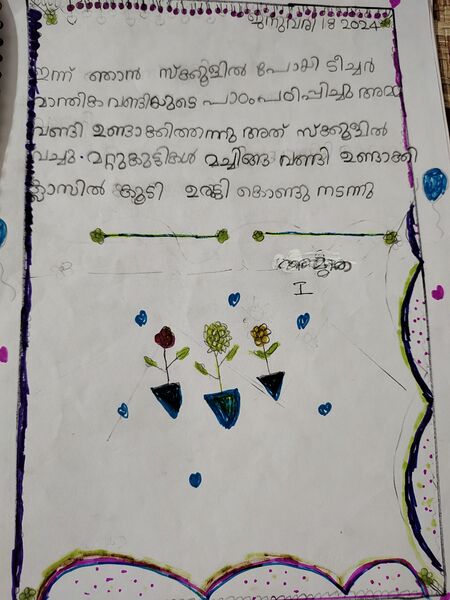 ജനുവരി 18 2024
ഇന്ന് ഞാൻ സ്കൂളിൽ പോയി ടീച്ചർ
മാന്ത്രിക വണ്ടിയുടെ പാഠം പഠിപ്പിച്ചു അമ്മ
വണ്ടി ഉണ്ടാക്കിത്തന്നു അത് സ്കൂളിൽ
വച്ചു. മറ്റുകുട്ടികൾ മച്ചിങ്ങ വണ്ടി ഉണ്ടാക്കി
ക്ലാസിൽ കൂടി ഉരുട്ടി കൊണ്ടു നടന്നു
I